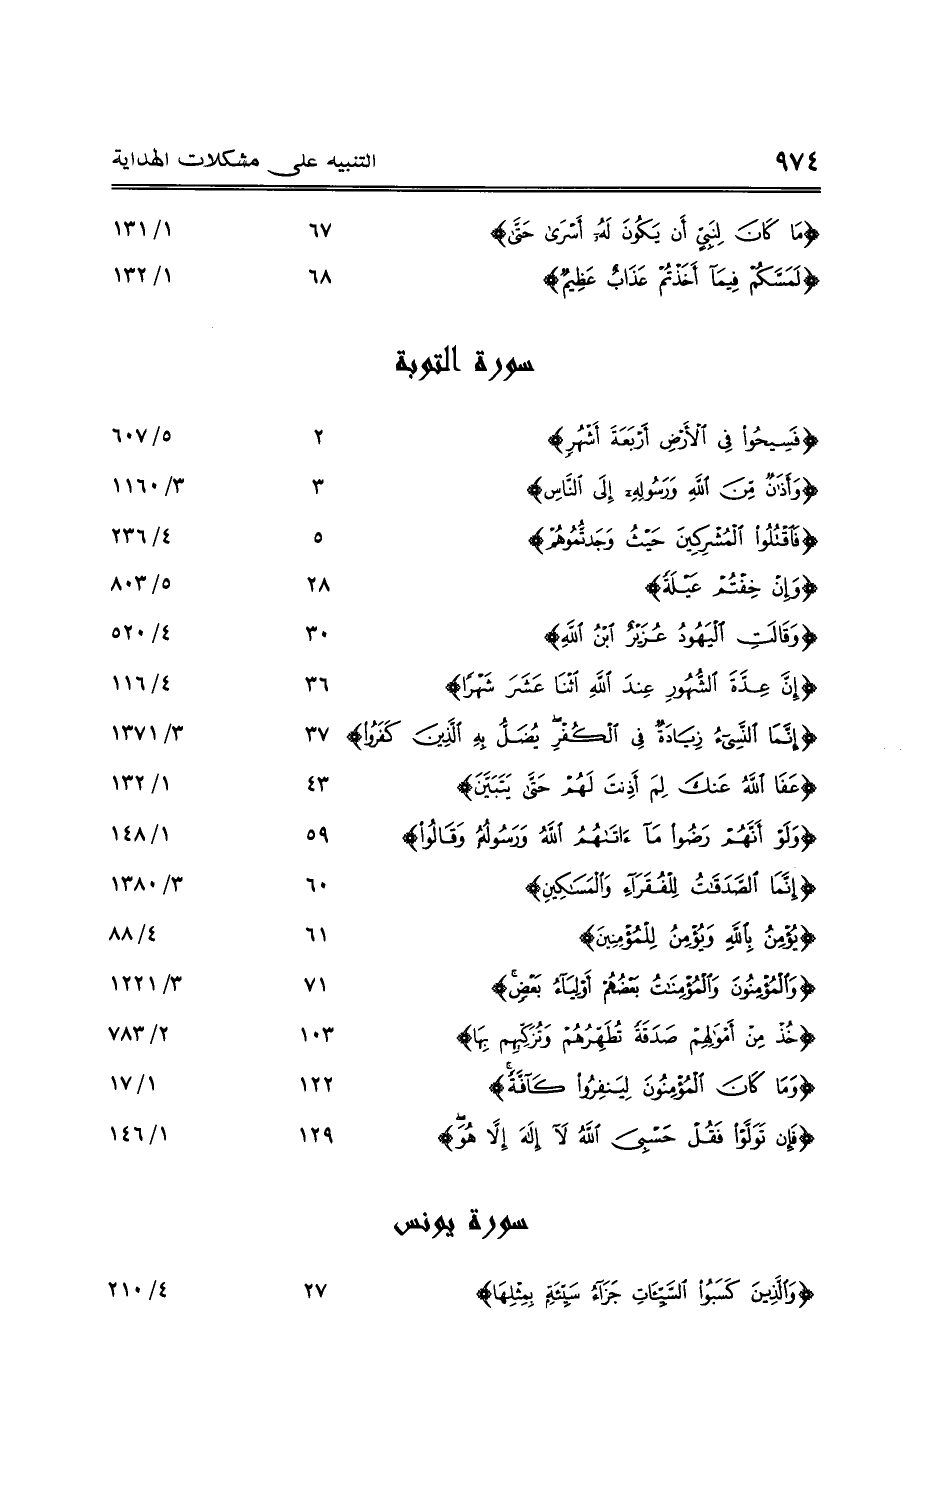 ٩٧٤ التنبيه على مشكلات الهداية
﴿مَا كَانَ لِنَبِيٍّ أَن يَكُونَ لَهُۥٓ أَسْرَىٰ حَتَّىٰ﴾ ٦٧ ١٣١/١
﴿لَمَسَّكُمْ فِيمَآ أَخَذْتُمْ عَذَابٌ عَظِيمٌ﴾ ٦٨ ١٣٢/١
سورة التوبة
﴿فَسِيحُوا۟ فِى ٱلْأَرْضِ أَرْبَعَةَ أَشْهُرٍ﴾ ٢ ٦٠٧/٥
﴿وَأَذَٰنٌ مِّنَ ٱللَّهِ وَرَسُولِهِۦٓ إِلَى ٱلنَّاسِ﴾ ٣ ١١٦٠/٣
﴿فَٱقْتُلُوا۟ ٱلْمُشْرِكِينَ حَيْثُ وَجَدتُّمُوهُمْ﴾ ٥ ٢٣٦/٤
﴿وَإِنْ خِفْتُمْ عَيْلَةً﴾ ٢٨ ٨٠٣/٥
﴿وَقَالَتِ ٱلْيَهُودُ عُزَيْرٌ ٱبْنُ ٱللَّهِ﴾ ٣٠ ٥٢٠/٤
﴿إِنَّ عِدَّةَ ٱلشُّهُورِ عِندَ ٱللَّهِ ٱثْنَا عَشَرَ شَهْرًا﴾ ٣٦ ١١٦/٤
﴿إِنَّمَا ٱلنَّسِىٓءُ زِيَادَةٌ فِى ٱلْكُفْرِ ۖ يُضَلُّ بِهِ ٱلَّذِينَ كَفَرُوا۟﴾ ٣٧ ١٣٧١/٣
﴿عَفَا ٱللَّهُ عَنكَ لِمَ أَذِنتَ لَهُمْ حَتَّىٰ يَتَبَيَّنَ﴾ ٤٣ ١٣٢/١
﴿وَلَوْ أَنَّهُمْ رَضُوا۟ مَآ ءَاتَىٰهُمُ ٱللَّهُ وَرَسُولُهُۥ وَقَالُوا۟﴾ ٥٩ ١٤٨/١
﴿إِنَّمَا ٱلصَّدَقَٰتُ لِلْفُقَرَآءِ وَٱلْمَسَٰكِينِ﴾ ٦٠ ١٣٨٠/٣
﴿يُؤْمِنُ بِٱللَّهِ وَيُؤْمِنُ لِلْمُؤْمِنِينَ﴾ ٦١ ٨٨/٤
﴿وَٱلْمُؤْمِنُونَ وَٱلْمُؤْمِنَٰتُ بَعْضُهُمْ أَوْلِيَآءُ بَعْضٍ ۚ﴾ ٧١ ١٢٢١/٣
﴿خُذْ مِنْ أَمْوَٰلِهِمْ صَدَقَةً تُطَهِّرُهُمْ وَتُزَكِّيهِم بِهَا﴾ ١٠٣ ٧٨٣/٢
﴿وَمَا كَانَ ٱلْمُؤْمِنُونَ لِيَنفِرُوا۟ كَآفَّةً ۚ﴾ ١٢٢ ١٧/١
﴿فَإِن تَوَلَّوْا۟ فَقُلْ حَسْبِىَ ٱللَّهُ لَآ إِلَٰهَ إِلَّا هُوَ ۖ﴾ ١٢٩ ١٤٦/١
سورة يونس
﴿وَٱلَّذِينَ كَسَبُوا۟ ٱلسَّيِّـَٔاتِ جَزَآءُ سَيِّئَةٍۭ بِمِثْلِهَا﴾ ٢٧ ٢١٠/٤